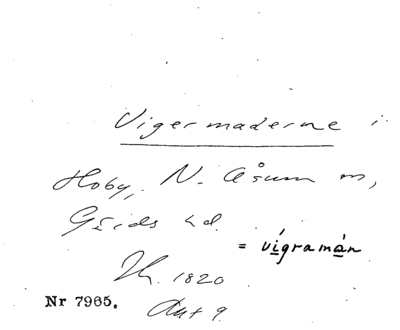 Vigermaderne i
Hoby, N. Åsum sn,
Gärds hd.
= vígramán
1820
Nr 7965.
Akt 9